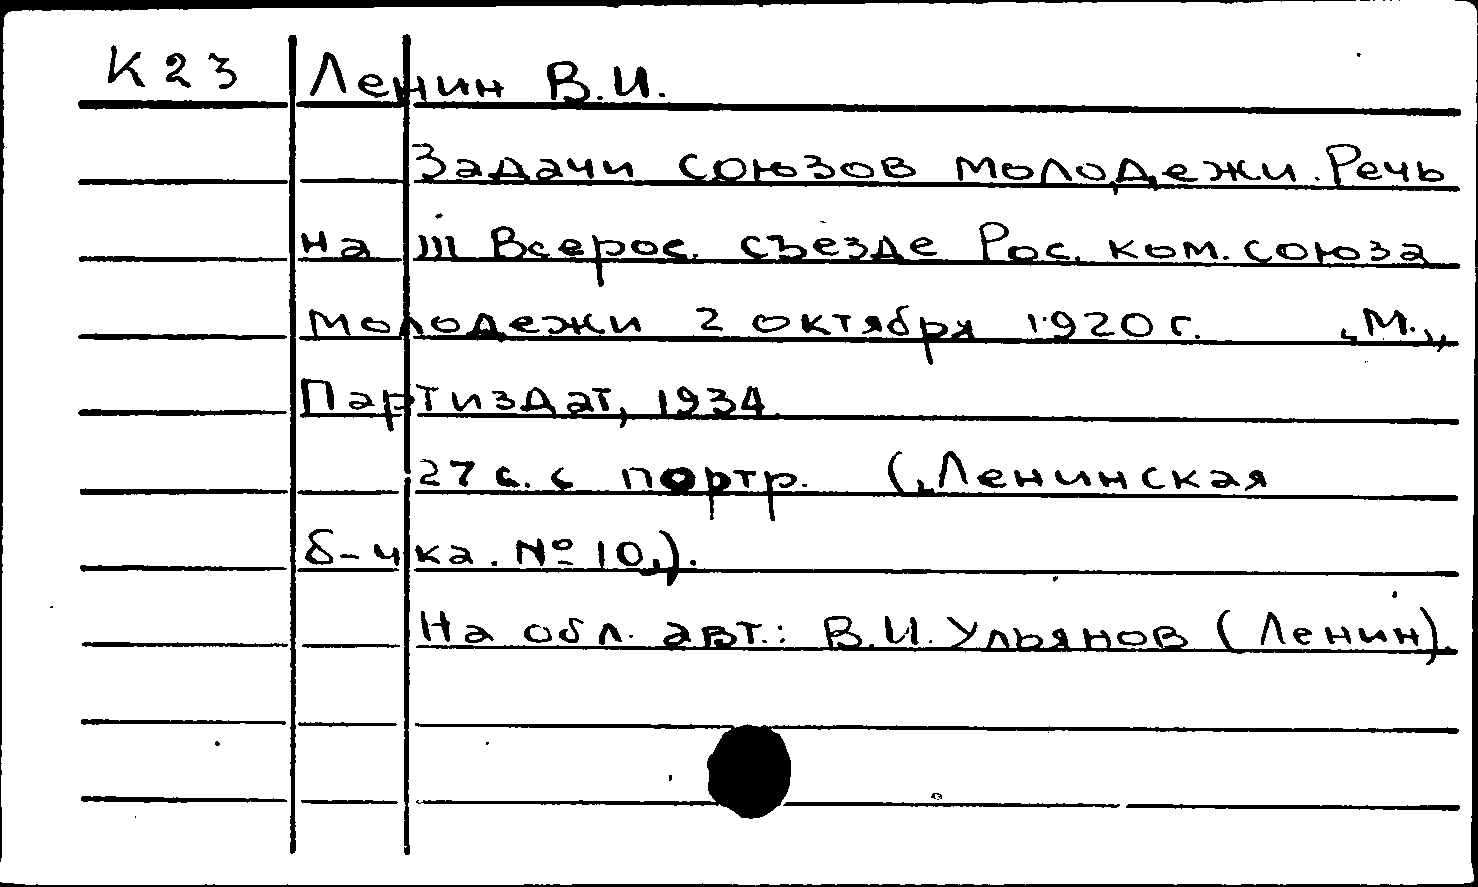 К23 Ленин В.И.
Задачи союзов молодежи. Речь
на III Всерос. съезде Рос. ком. союза
молодежи 2 октября 1920 г. „М.„
Партиздат, 1934
27 с. с портр. („Ленинская
б-чка. № 10„).
На обл. авт.: В.И. Ульянов (Ленин).